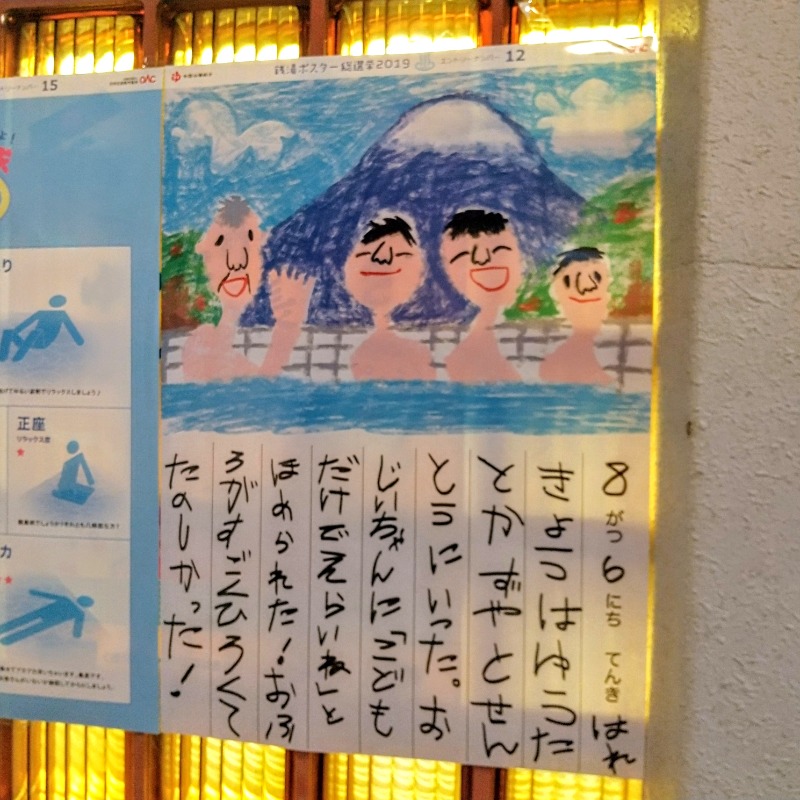 銭湯ポスター総選挙2019
エントリーナンバー 12
8がつ6にち てんき はれ
きょうはゆうた
とかずやとせん
とうにいった。お
じいちゃんに「こども
だけでえらいね」と
ほめられた！おふ
ろがすごくひろくて
たのしかった！
15
OAC
よ！
り
正座
リラックス度
★
カ